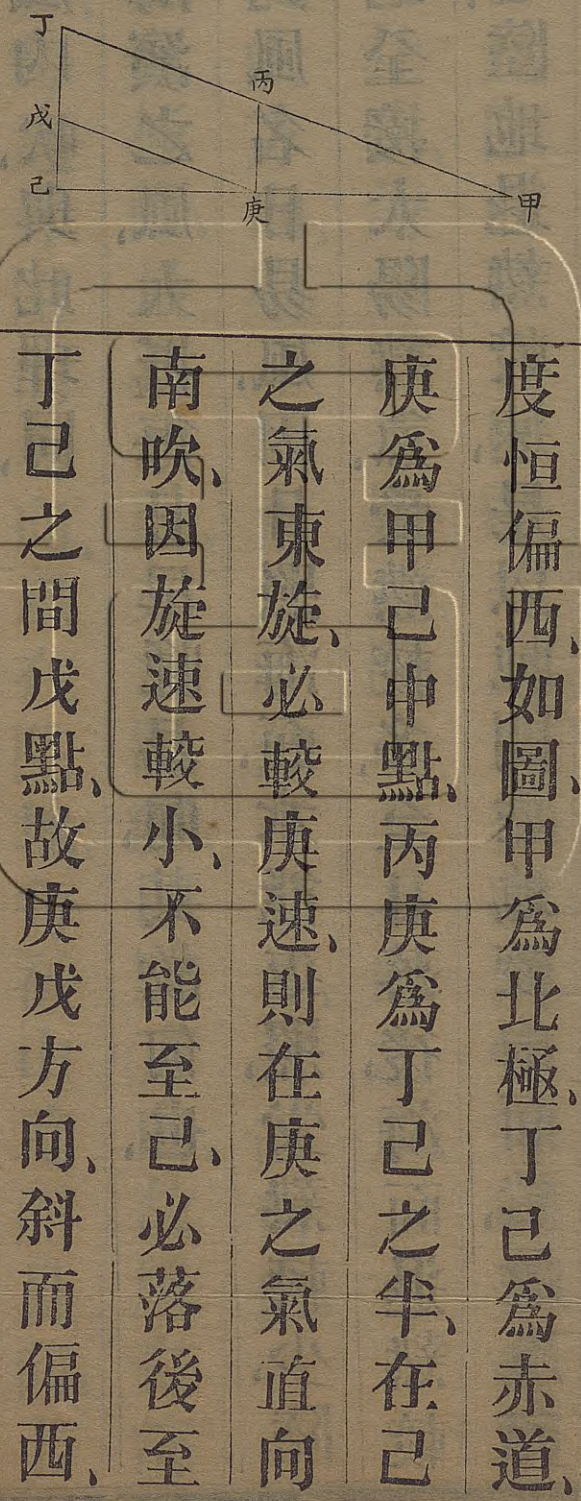 丁
丙
戊
己
庚
甲
度恒偏西、如圖、甲爲北極、丁己爲赤道、
庚爲甲己中點、丙庚爲丁己之半、在己
之氣東旋、必較庚速、則在庚之氣直向
南吹、因旋速較小、不能至己、必落後至
丁己之間戊點、故庚戊方向、斜而偏西、